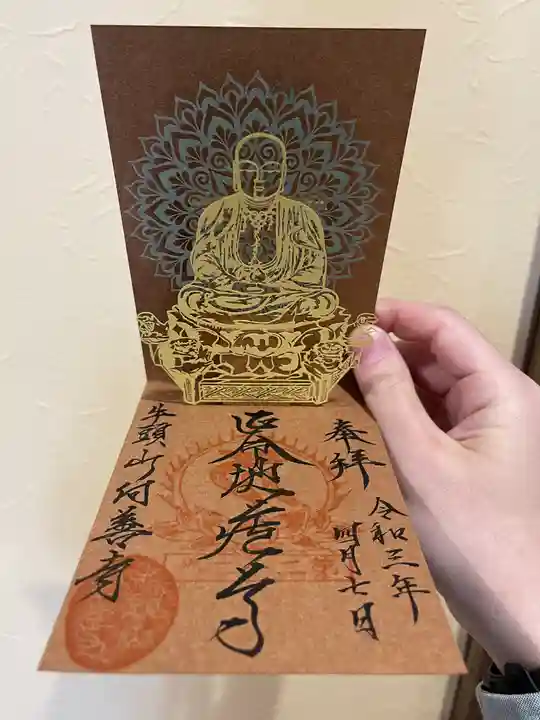 奉拝
令和三年
四月七日
延命地蔵尊
牛頭山付善寺